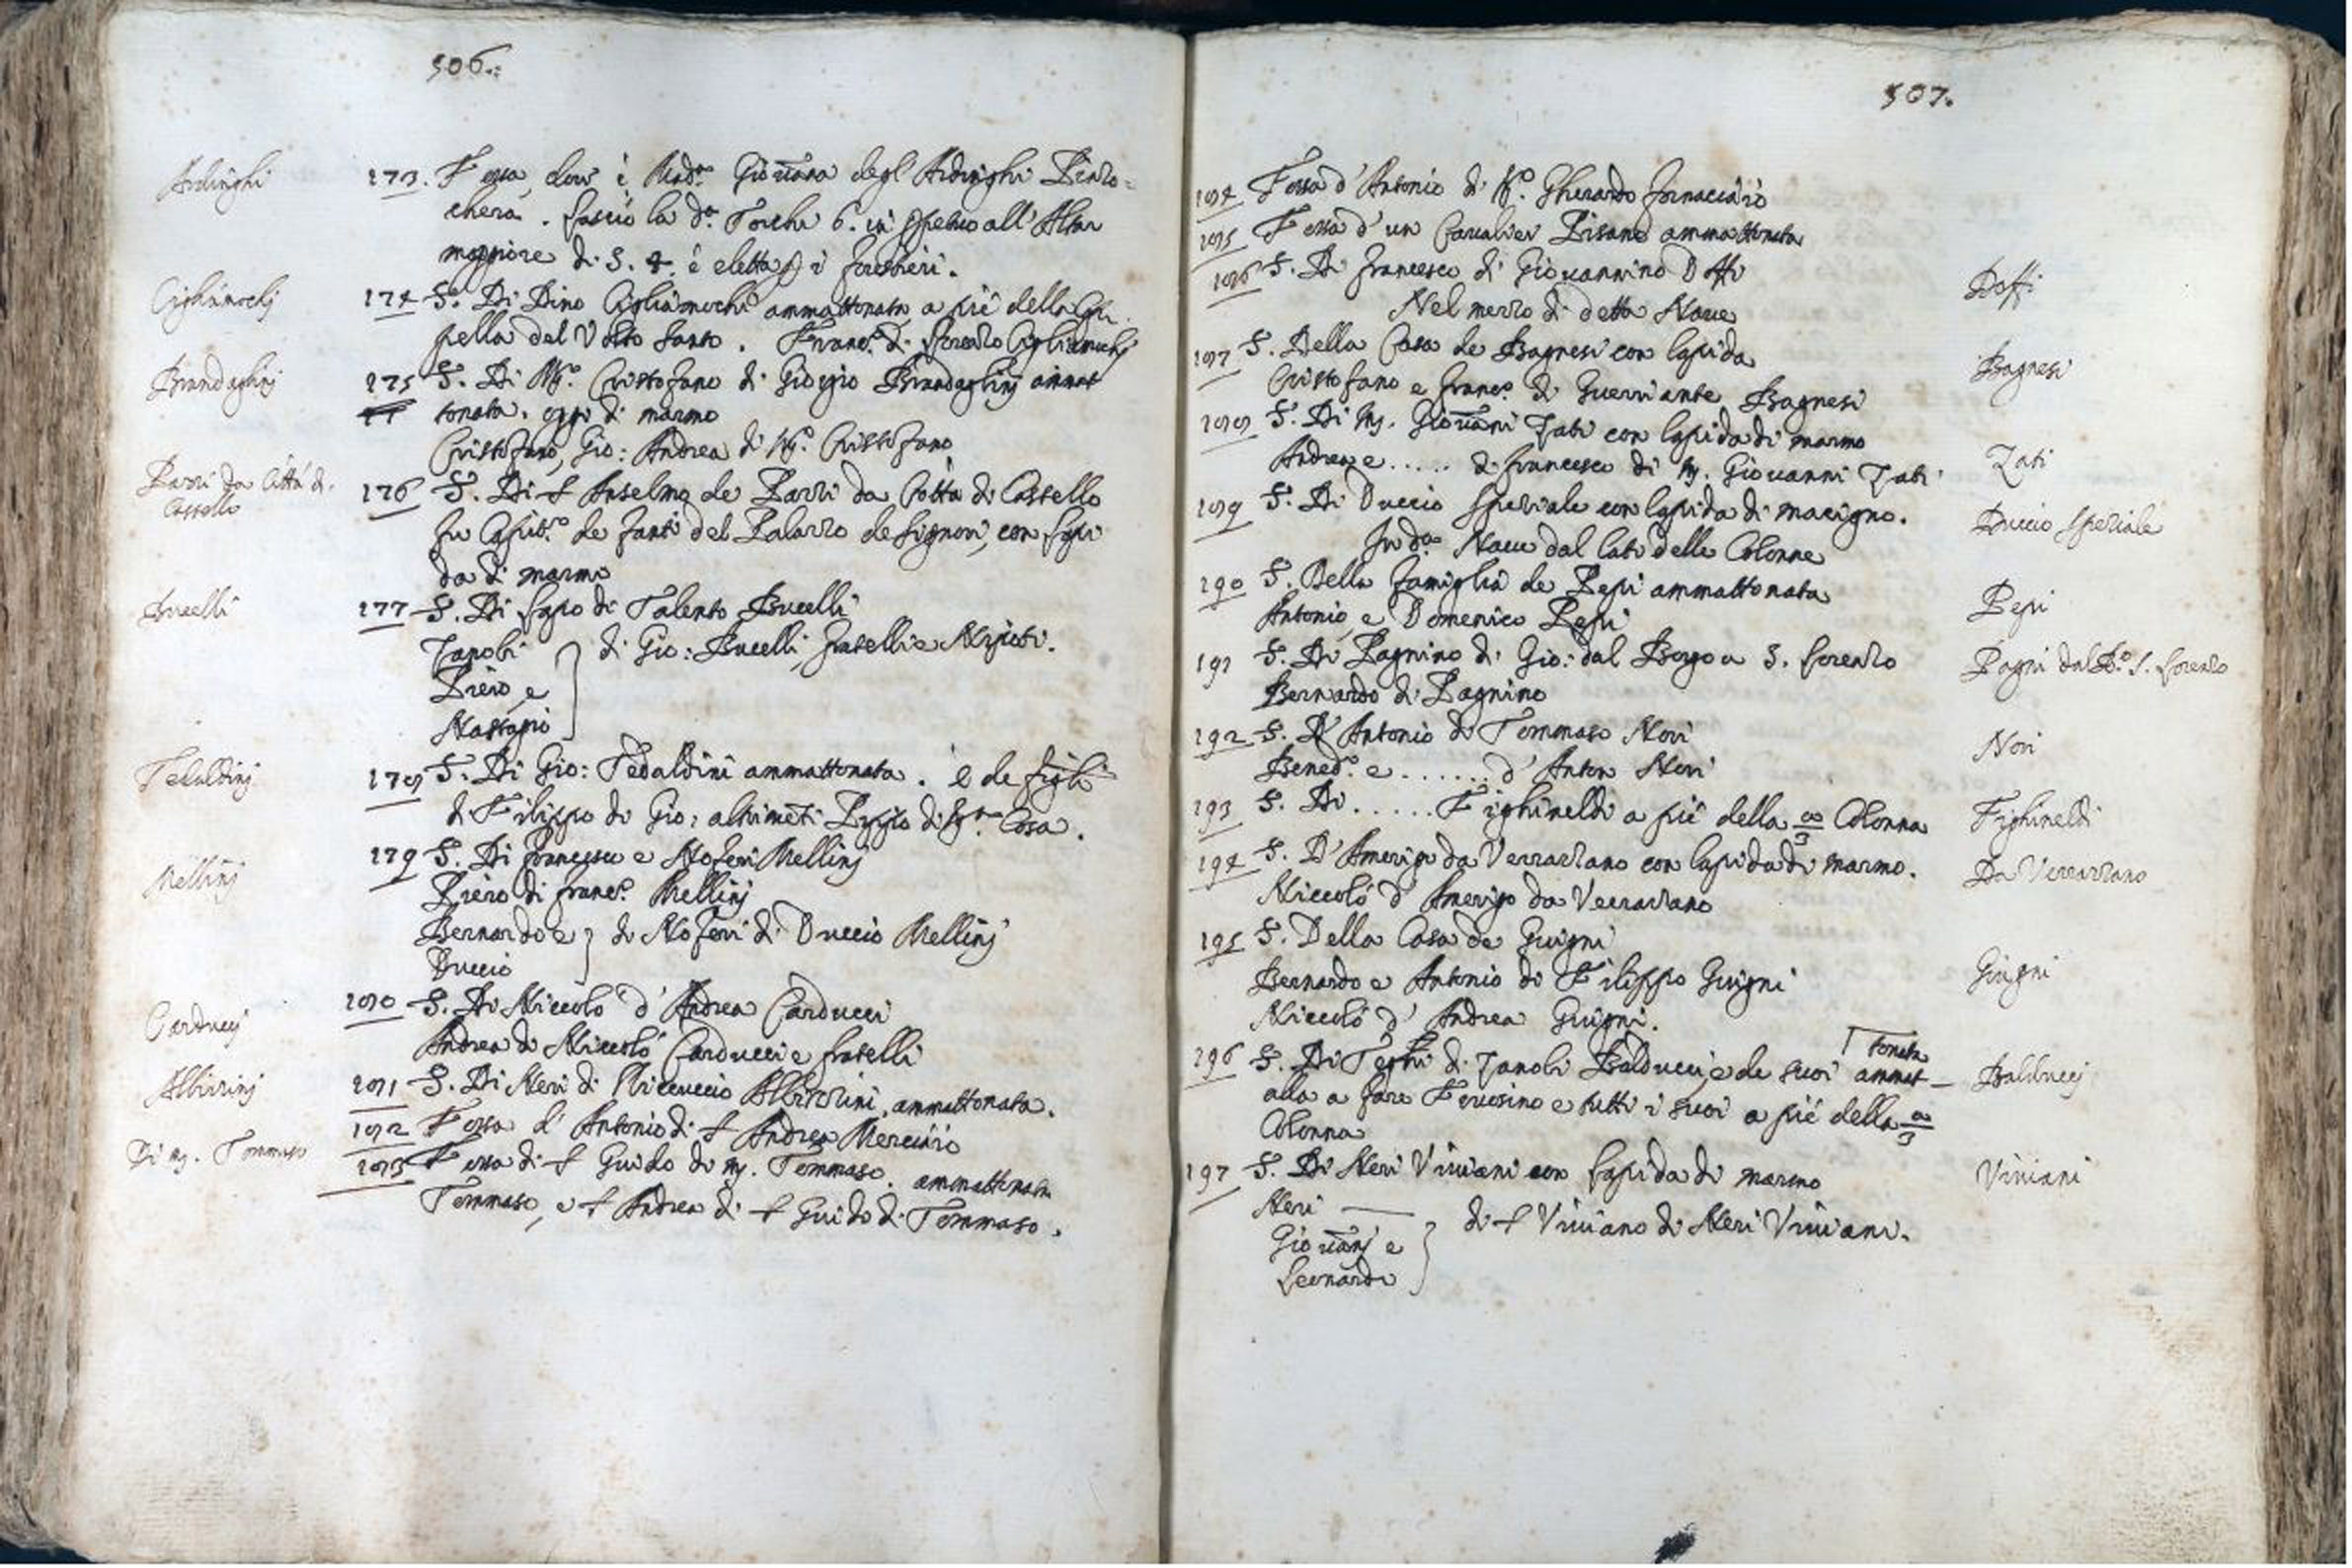 506.
Ardinghi
173. Fossa dov' è Mad.ª Giovāna degl' Ardinghi Pinzo=
chera. Lasciò la d.ª Torchi 6. in perpetuo all' Altar
maggiore di S. ✝. è eletta p i forestieri.
Cigliamochj
174 S. Di Dino Cigliamochi ammattonata a piè della Cap
pella del Volto Santo. Franc.º di Lorenzo Cigliamochj
Brandaglinj
175 S. Di M.º Cristofano di Giorgio Brandaglinj ammat
tonata. oggi di marmo
Cristofano, Gio: Andrea di M.º Cristofano
Pazzi da Città di
Castello
176 S. Di S Anselmo de Pazzi da Città di Castello
Fu Capit.º de fanti del Palazzo de Signori, con lapi
da di marmo
Bucelli
177 S. Di Lapo di Talento Bucelli
Zanobi
Piero, e
Nastagio
di Gio: Bucelli, fratelli e Nipoti.
Tedaldinj
178 S. Di Gio: Tedaldini ammattonata. è de figli
di Filippo di Gio: altrimēti Pippo di M.ª Cosa.
Mellinj
179 S. Di Francesco e Noferi Mellinj
Piero di Franc.º Mellinj
Bernardo e
Duccio
di Noferi di Duccio Mellinj
Carduccj
180 S. Di Niccolò d' Andrea Carducci
Andrea di Niccolò Carducci e fratelli
Albizzinj
181 S. Di Neri di Niccoluccio Albizzini, ammattonata.
182 Fossa d' Antonio di S Andrea Merciaio
Di M. Tommaso
183 Fossa di S Guido di M. Tommaso. ammattonata
Tommaso, e S Andrea di S Guido di Tommaso.
507.
184 Fossa d' Antonio di M.º Gherardo fornaciaio
185 Fossa d' un Cavalier Pisano ammattonata
186 S. Di Francesco di Giovannino Doffi
Doffi
Nel mezzo di detta Nave
187 S. Della Casa de Bagnesi con lapida
Bagnesi
Cristofano e Franc.º di Guerriante Bagnesi
188 S. Di M. Giovāni Zati con lapida di marmo
Andrea e ..... di Francesco di M. Giovanni Zati
Zati
189 S. Di Duccio Speziale con lapida di macigno.
Duccio Speziale
In d.ª Nave dal lato delle Colonne
190 S. Della famiglia de Pepi ammattonata
Pepi
Antonio, e Domenico Pepi
191 S. Di Pagnino di Gio: dal Borgo a S. Lorenzo
Pagni dal B.º S. Lorenzo
Bernardo di Pagnino
192 S. D' Antonio di Tommaso Nori
Nori
Bened.º e ...... d' Anton Nori
193 S. Di ..... Fighineldi a piè della a/3 Colonna
Fighineldi
194 S. D' Amerigo da Verrazzano con lapida di marmo.
Da Verrazzano
Niccolò d' Amerigo da Verrazzano
195 S. Della Casa de Giugni
Bernardo e Antonio di Filippo Giugni
Giugni
Niccolò d' Andrea Giugni.
196 S. Di Teghi di Zanobi Balducci, e de suoi ammat- tonata
Balduccj
alla a fare e tutti i suoi a piè della a/3
Colonna
197 S. Di Neri Viviani con lapida di marmo
Viviani
Neri
Giovānj e
Leonardo
di S Viviano di Neri Viviani.